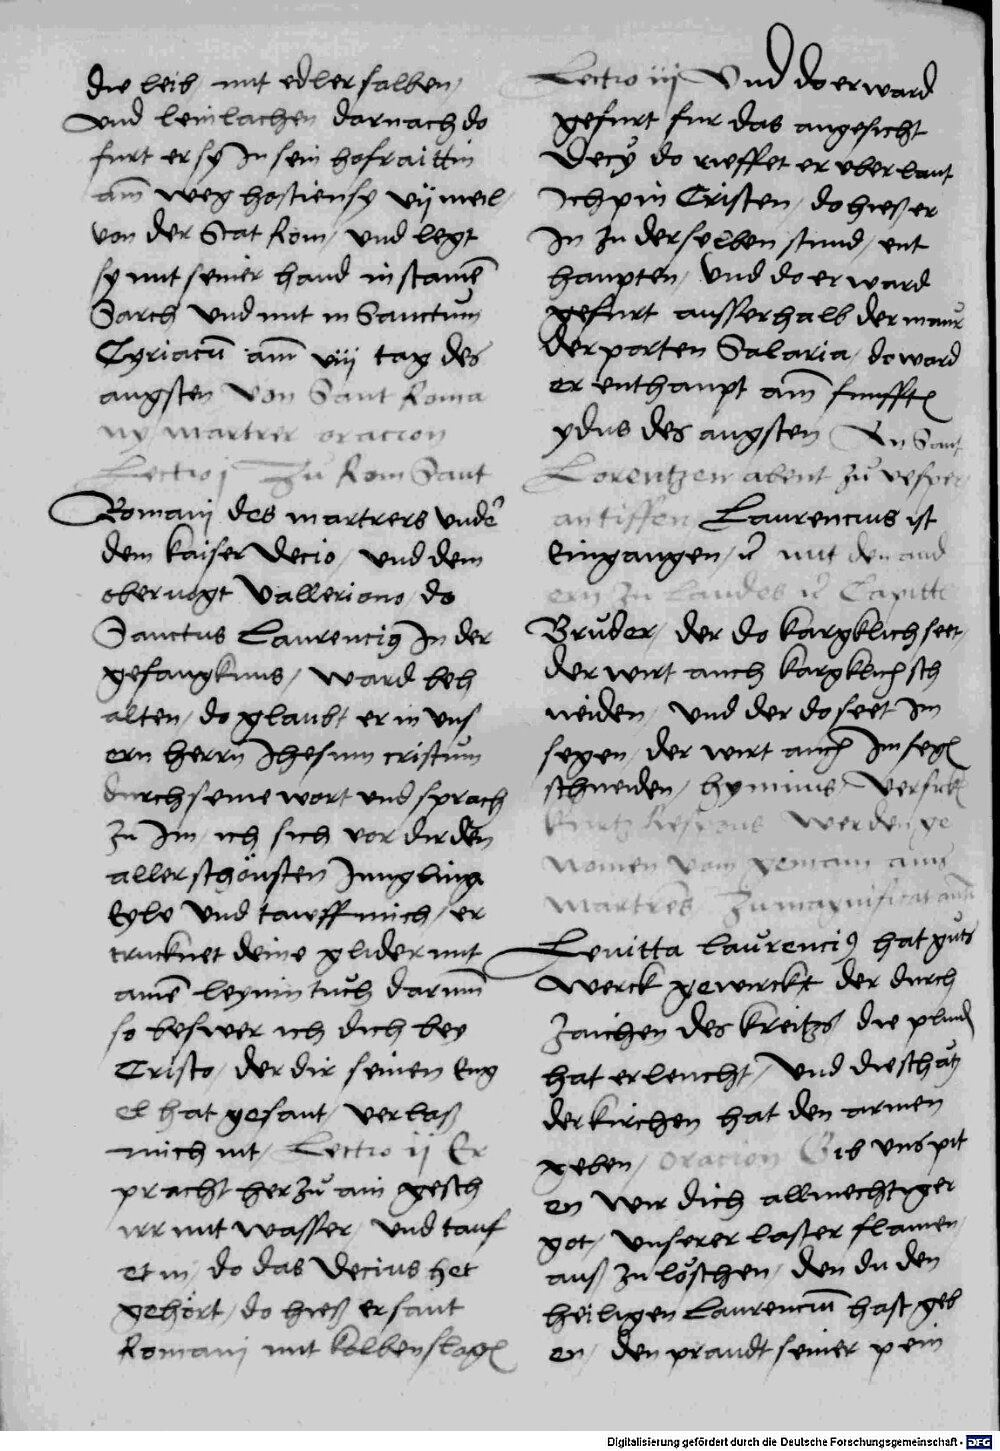 die leib / mit edler salben /
vnd leinlachen darnach do
furt er sy In sein hofraittin
am̄ weg hostiensy vij meil /
von der Stat Rom / vnd legt
sy mit seiner hand in stainē
Sarch vnd mit in Sanctum
Cyriacū am̄ viij tag des
augsten Von Sant Roma
ny martrer oracion
Lectio j Zu Rom Sant
Romani des martrers vndē
dem kaiser Decio / vnd dem
obervogt Valleriono / do
Sanctus Laurencius In der
gefangknus / ward beh
alten / do glaubt er in vns
ern herrn Jhesum cristum
durch seine wort vnd sprach
zu Im / ich sich vor dir den
aller schönsten Jungling
Eyle vnd tawff mich / er
trucknet deine glider mit
ainē leynin tuch darum̄
so beswer ich dich bey
Cristo / der dir seinen Eng
el hat gesant / verlaß
mich nit / Lectio ij Er
pracht herzu ain gesch
irr mit wasser / vnd tauf
et in / do das Decius het
gehört / do hieß er sant
Romani mit kolben slagē
Lectio iij Vnd do er ward
gefurt fur das angesicht
Decÿ do rieffet er vberlaut
Ich pin Cristen / do hieß er
In zu derselben stund / ent
haupten / Vnd do er ward
gefurt ausserhalb der maur
der porten Salaria / do ward
er enthaupt am̄ funfftē
ydus des augsten An Sant
Lorentzen abent zu vesper
antiffen Laurencius ist
Eingangen / mit den and
ern zu Laudes Capittl
Bruder / der do kargklich seet /
der wirt auch kargklich sch
neiden / vnd der do seet Im
segen / der wirt auch Im segē
schneiden / hymnus / versickl
kurtz Respons werden ge
nomen vom gemain ains
martrers Zu magnificat anti
Leuitta laurencius hat guts
werck gewirckt der durch
Zaichen des kreitzs die plindē
hat erleucht / vnd die schätz
der kirchen hat den armen
geben / oracion Gib vns pit
en wir dich allmechtiger
got / vnserer laster flamen /
auß zu löschen / den du den
heiligen Laurenciū hast geb
en / den prandt seiner pein